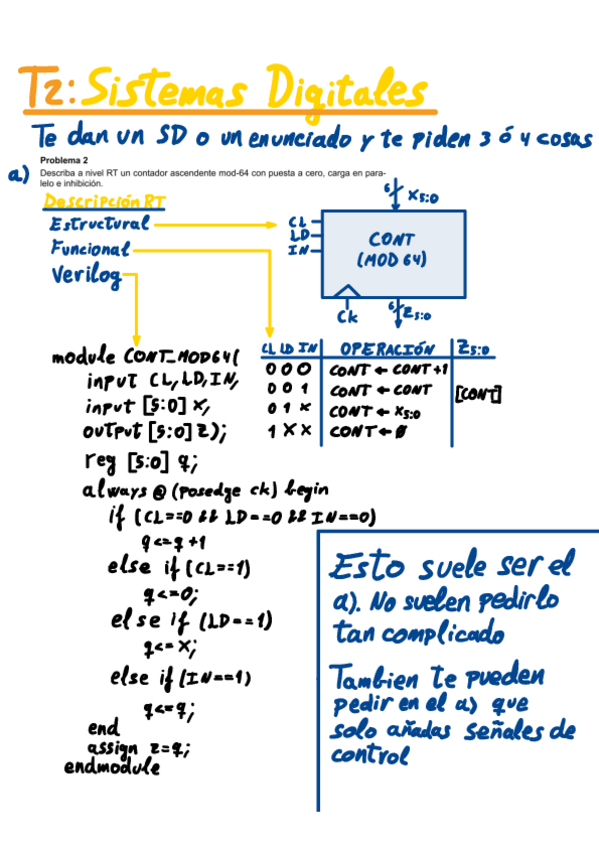 T2: Sistemas Digitales
Te dan un SD o un enunciado y te piden 3 ó 4 cosas
Problema 2
a) Describa a nivel RT un contador ascendente mod-64 con puesta a cero, carga en para-
lelo e inhibición.
Descripción RT
Estructural
Funcional
Verilog
6 X5:0
CL
LD
IN
CONT
(MOD 64)
Ck
6 Z5:0
CL LD IN OPERACIÓN Z5:0
0 0 0 CONT ← CONT +1
0 0 1 CONT ← CONT [CONT]
0 1 X CONT ← X5:0
1 X X CONT ← 0
module CONT_MOD64(
input CL, LD, IN,
input [5:0] X,
output [5:0] z);
reg [5:0] q;
always @ (posedge ck) begin
if (CL==0 && LD==0 && IN==0)
q<=q+1
else if (CL==1)
q<=0;
else if (LD==1)
q<=X;
else if (IN==1)
q<=q;
end
assign z=q;
endmodule
Esto suele ser el
a). No suelen pedirlo
tan complicado
Tambien te pueden
pedir en el a) que
solo añadas señales de
control